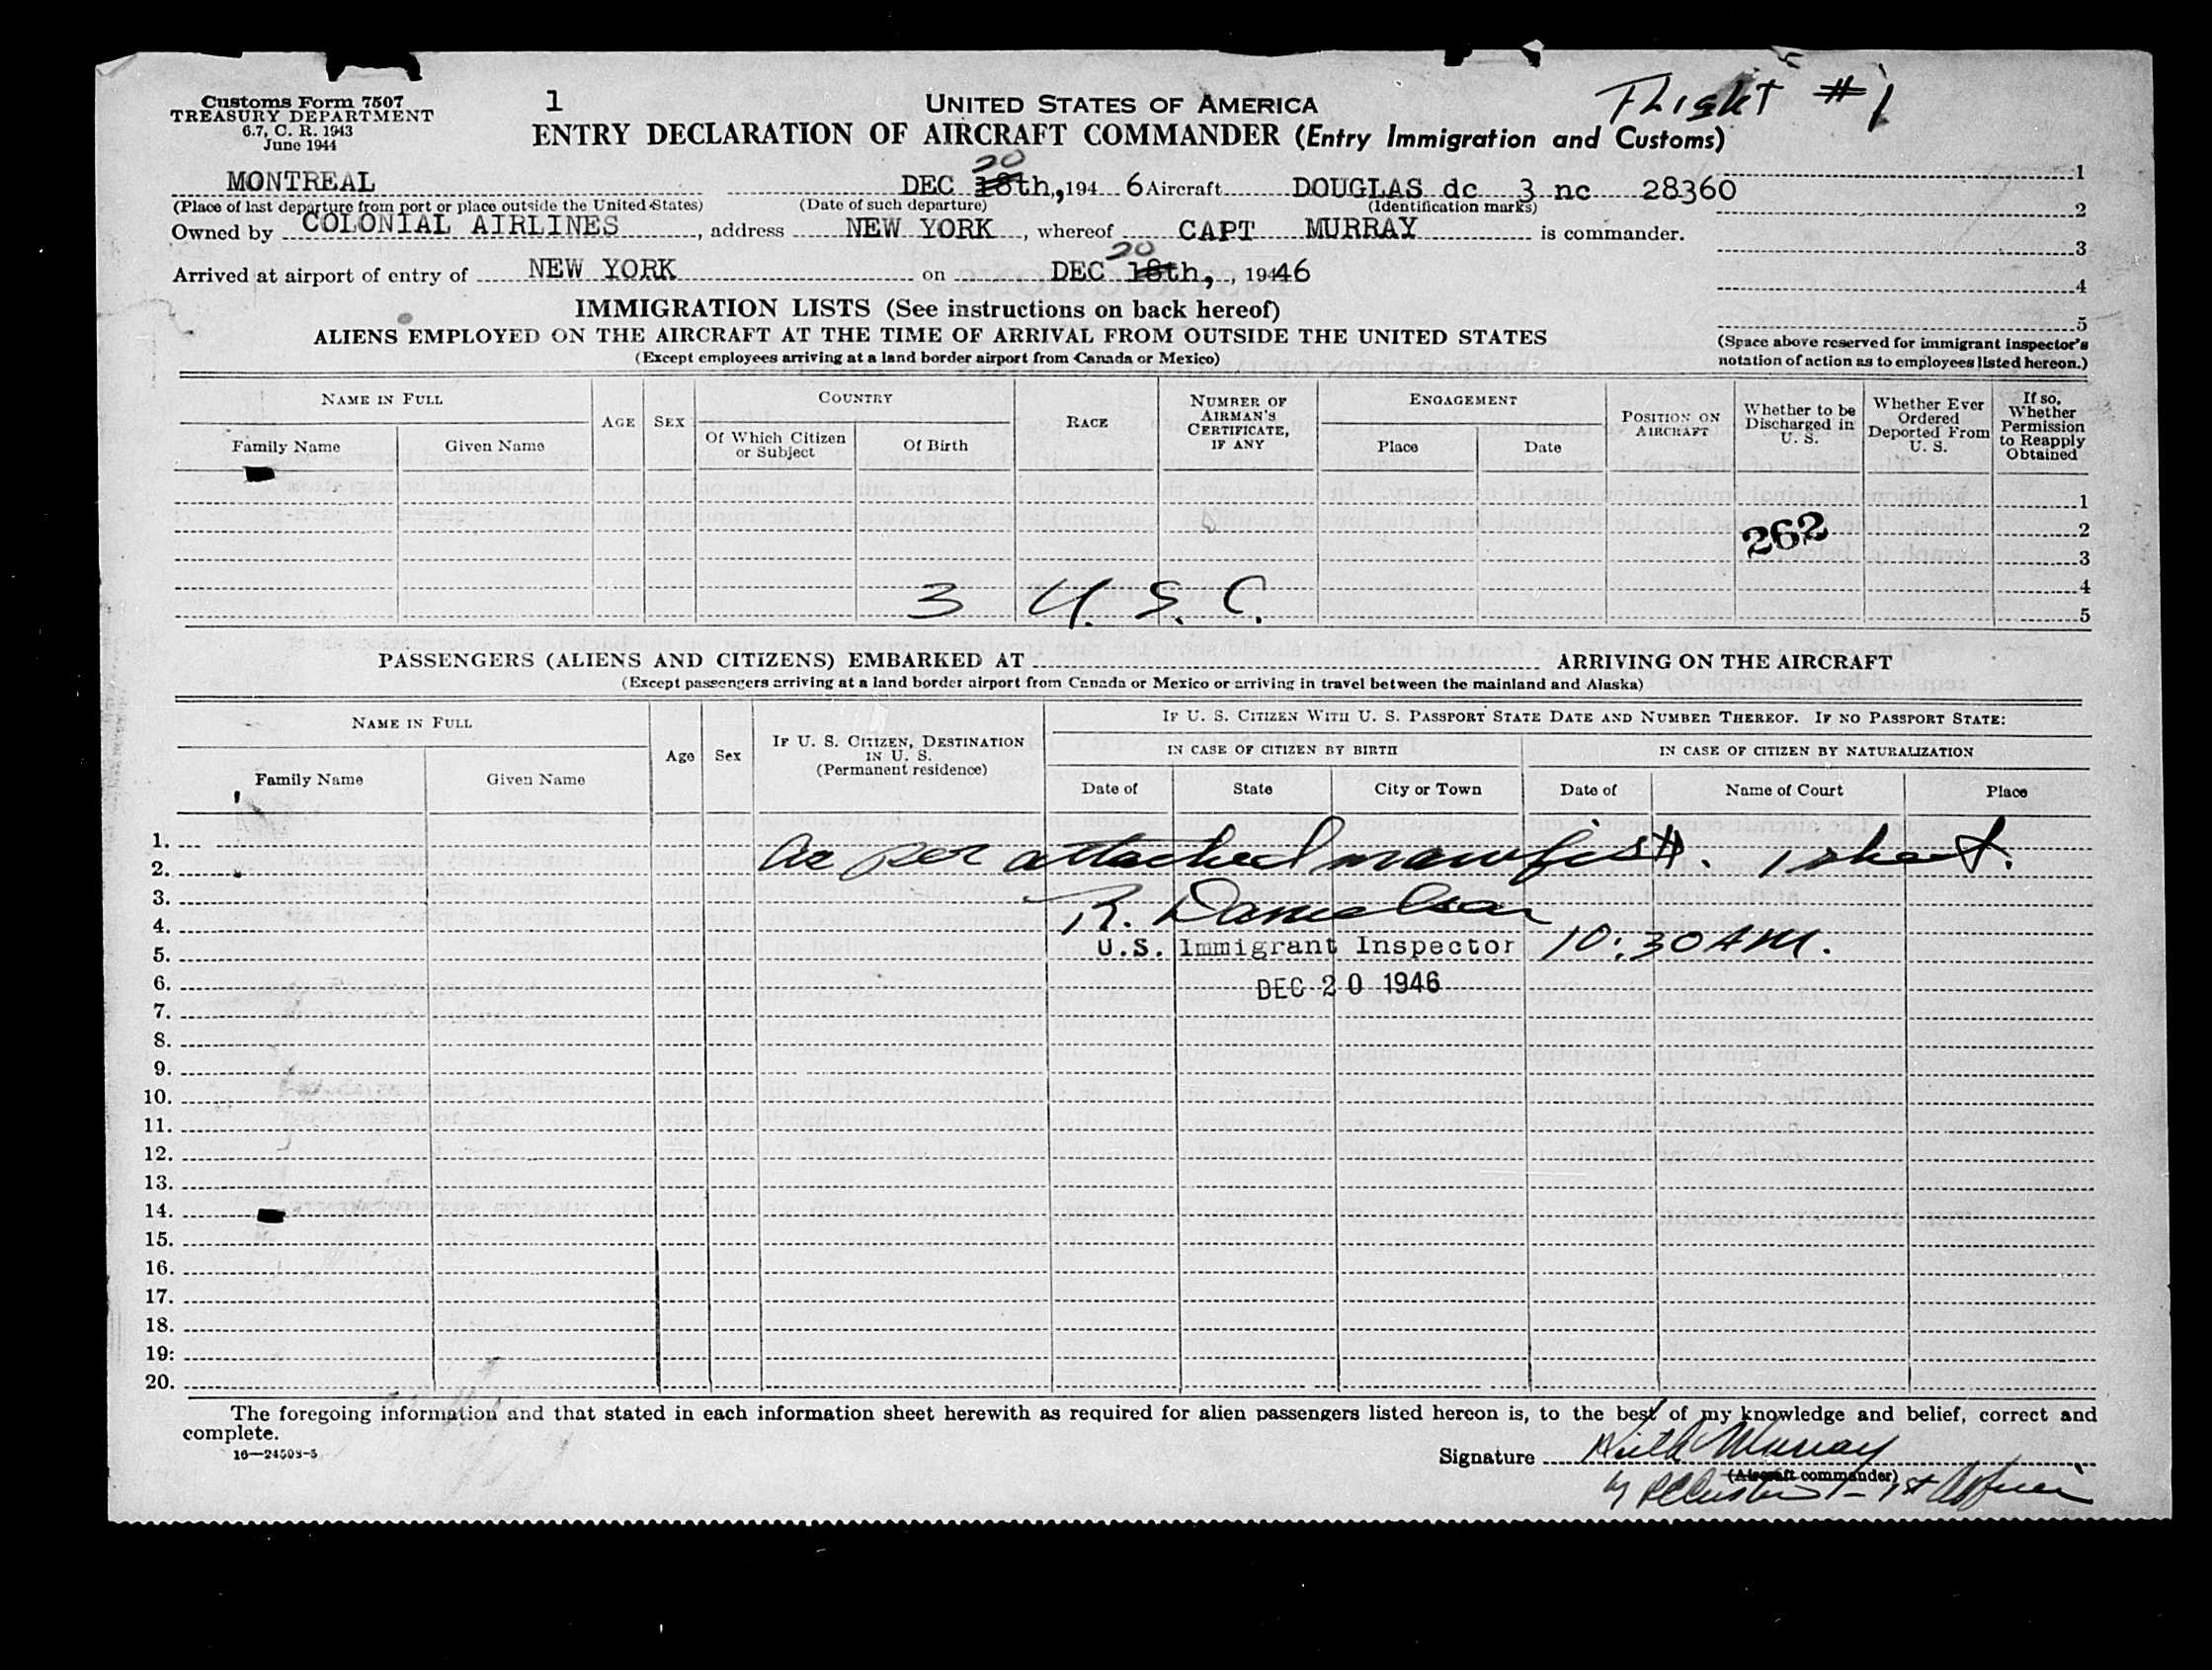 Customs Form 7507
TREASURY DEPARTMENT
6.7, C. R. 1943
June 1944
1
UNITED STATES OF AMERICA
Flight #1
ENTRY DECLARATION OF AIRCRAFT COMMANDER (Entry Immigration and Customs)
MONTREAL DEC 18th, 20 1946 Aircraft DOUGLAS dc 3 nc 28360
(Place of last departure from port or place outside the United States) (Date of such departure) (Identification marks)
Owned by COLONIAL AIRLINES, address NEW YORK, whereof CAPT MURRAY is commander.
Arrived at airport of entry of NEW YORK on DEC 18th, 20, 19446
1
2
3
4
5
(Space above reserved for immigrant inspector's
notation of action as to employees listed hereon.)
IMMIGRATION LISTS (See instructions on back hereof)
ALIENS EMPLOYED ON THE AIRCRAFT AT THE TIME OF ARRIVAL FROM OUTSIDE THE UNITED STATES
(Except employees arriving at a land border airport from Canada or Mexico)
NAME IN FULL
Family Name
Given Name
AGE
SEX
COUNTRY
Of Which Citizen
or Subject
Of Birth
RACE
NUMBER OF
AIRMAN'S
CERTIFICATE,
IF ANY
ENGAGEMENT
Place
Date
POSITION ON
AIRCRAFT
Whether to be
Discharged in
U. S.
Whether Ever
Ordered
Deported From
U. S.
If so,
Whether
Permission
to Reapply
Obtained
1
2
262
3
4
3 U. S. C.
5
PASSENGERS (ALIENS AND CITIZENS) EMBARKED AT ARRIVING ON THE AIRCRAFT
(Except passengers arriving at a land border airport from Canada or Mexico or arriving in travel between the mainland and Alaska)
NAME IN FULL
Family Name
Given Name
Age
Sex
IF U. S. CITIZEN, DESTINATION
IN U. S.
(Permanent residence)
IF U. S. CITIZEN WITH U. S. PASSPORT STATE DATE AND NUMBER THEREOF. IF NO PASSPORT STATE:
IN CASE OF CITIZEN BY BIRTH
Date of
State
City or Town
IN CASE OF CITIZEN BY NATURALIZATION
Date of
Name of Court
Place
1.
As per attached manifest. 1 sheet.
2.
3.
R. Danielson
4.
U.S. Immigrant Inspector 10:30 AM.
5.
6.
DEC 20 1946
7.
8.
9.
10.
11.
12.
13.
14.
15.
16.
17.
18.
19.
20.
The foregoing information and that stated in each information sheet herewith as required for alien passengers listed hereon is, to the best of my knowledge and belief, correct and
complete.
16—24508-5
Signature Keith Murray
(Aircraft commander)
by 1st Officer